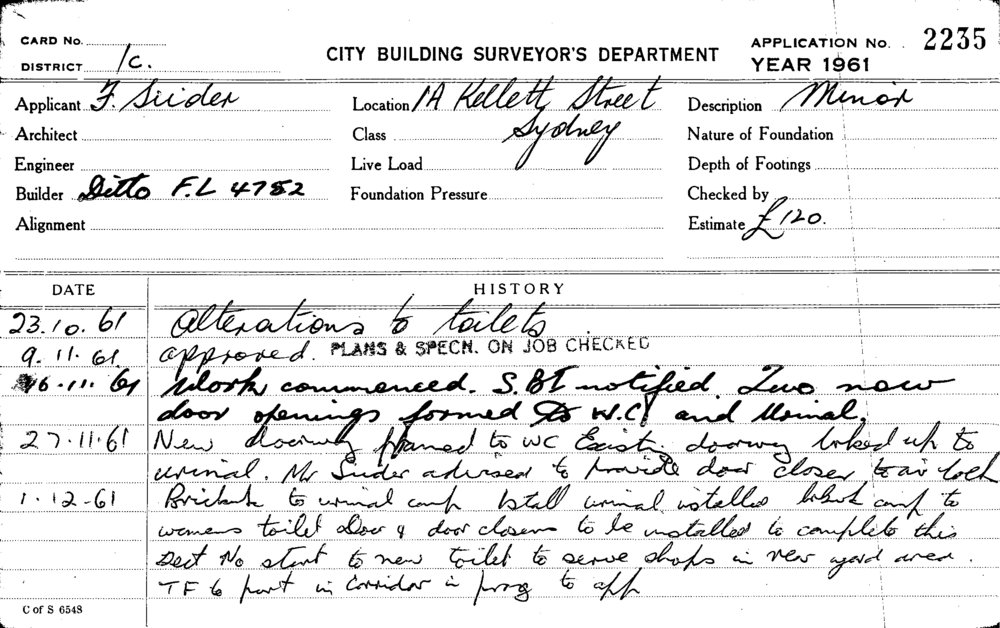 CARD No.
DISTRICT /c.
CITY BUILDING SURVEYOR'S DEPARTMENT
APPLICATION No. 2235
YEAR 1961
Applicant F. Suider Location 1A Kellett Street Description Minor
Architect Class Sydney Nature of Foundation
Engineer Live Load Depth of Footings
Builder Ditto F.L 4782 Foundation Pressure Checked by
Alignment Estimate £120.
DATE HISTORY
23.10.61 Alterations to toilets
9.11.61 approved. PLANS & SPECN. ON JOB CHECKED
16.11.61 Work commenced. S.B.I notified. Two new
door openings formed to W.C. and Urinal.
27.11.61 New doorway framed to WC Exist. doorway bricked up to
urinal. Mr Suider advised to provide door closer to air lock
1.12.61 to urinal comp stall urinal installed comp to
womens toilet Door & door closers to be installed to complete this
Sect No start to new toilet to serve shops in rear yard area.
TF to part in Corridor in prog to app
C of S 6548